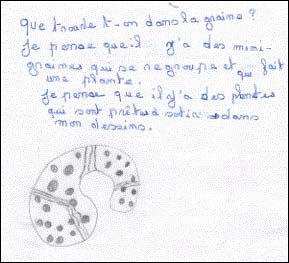 que trouve t-on dans la graine ?
Je pense que il y'a des mini-
graines qui se regroupe et qui fait
une plante.
Je pense que il y'a des plantes
qui sont prêtes a sortir dans
mon dessins.